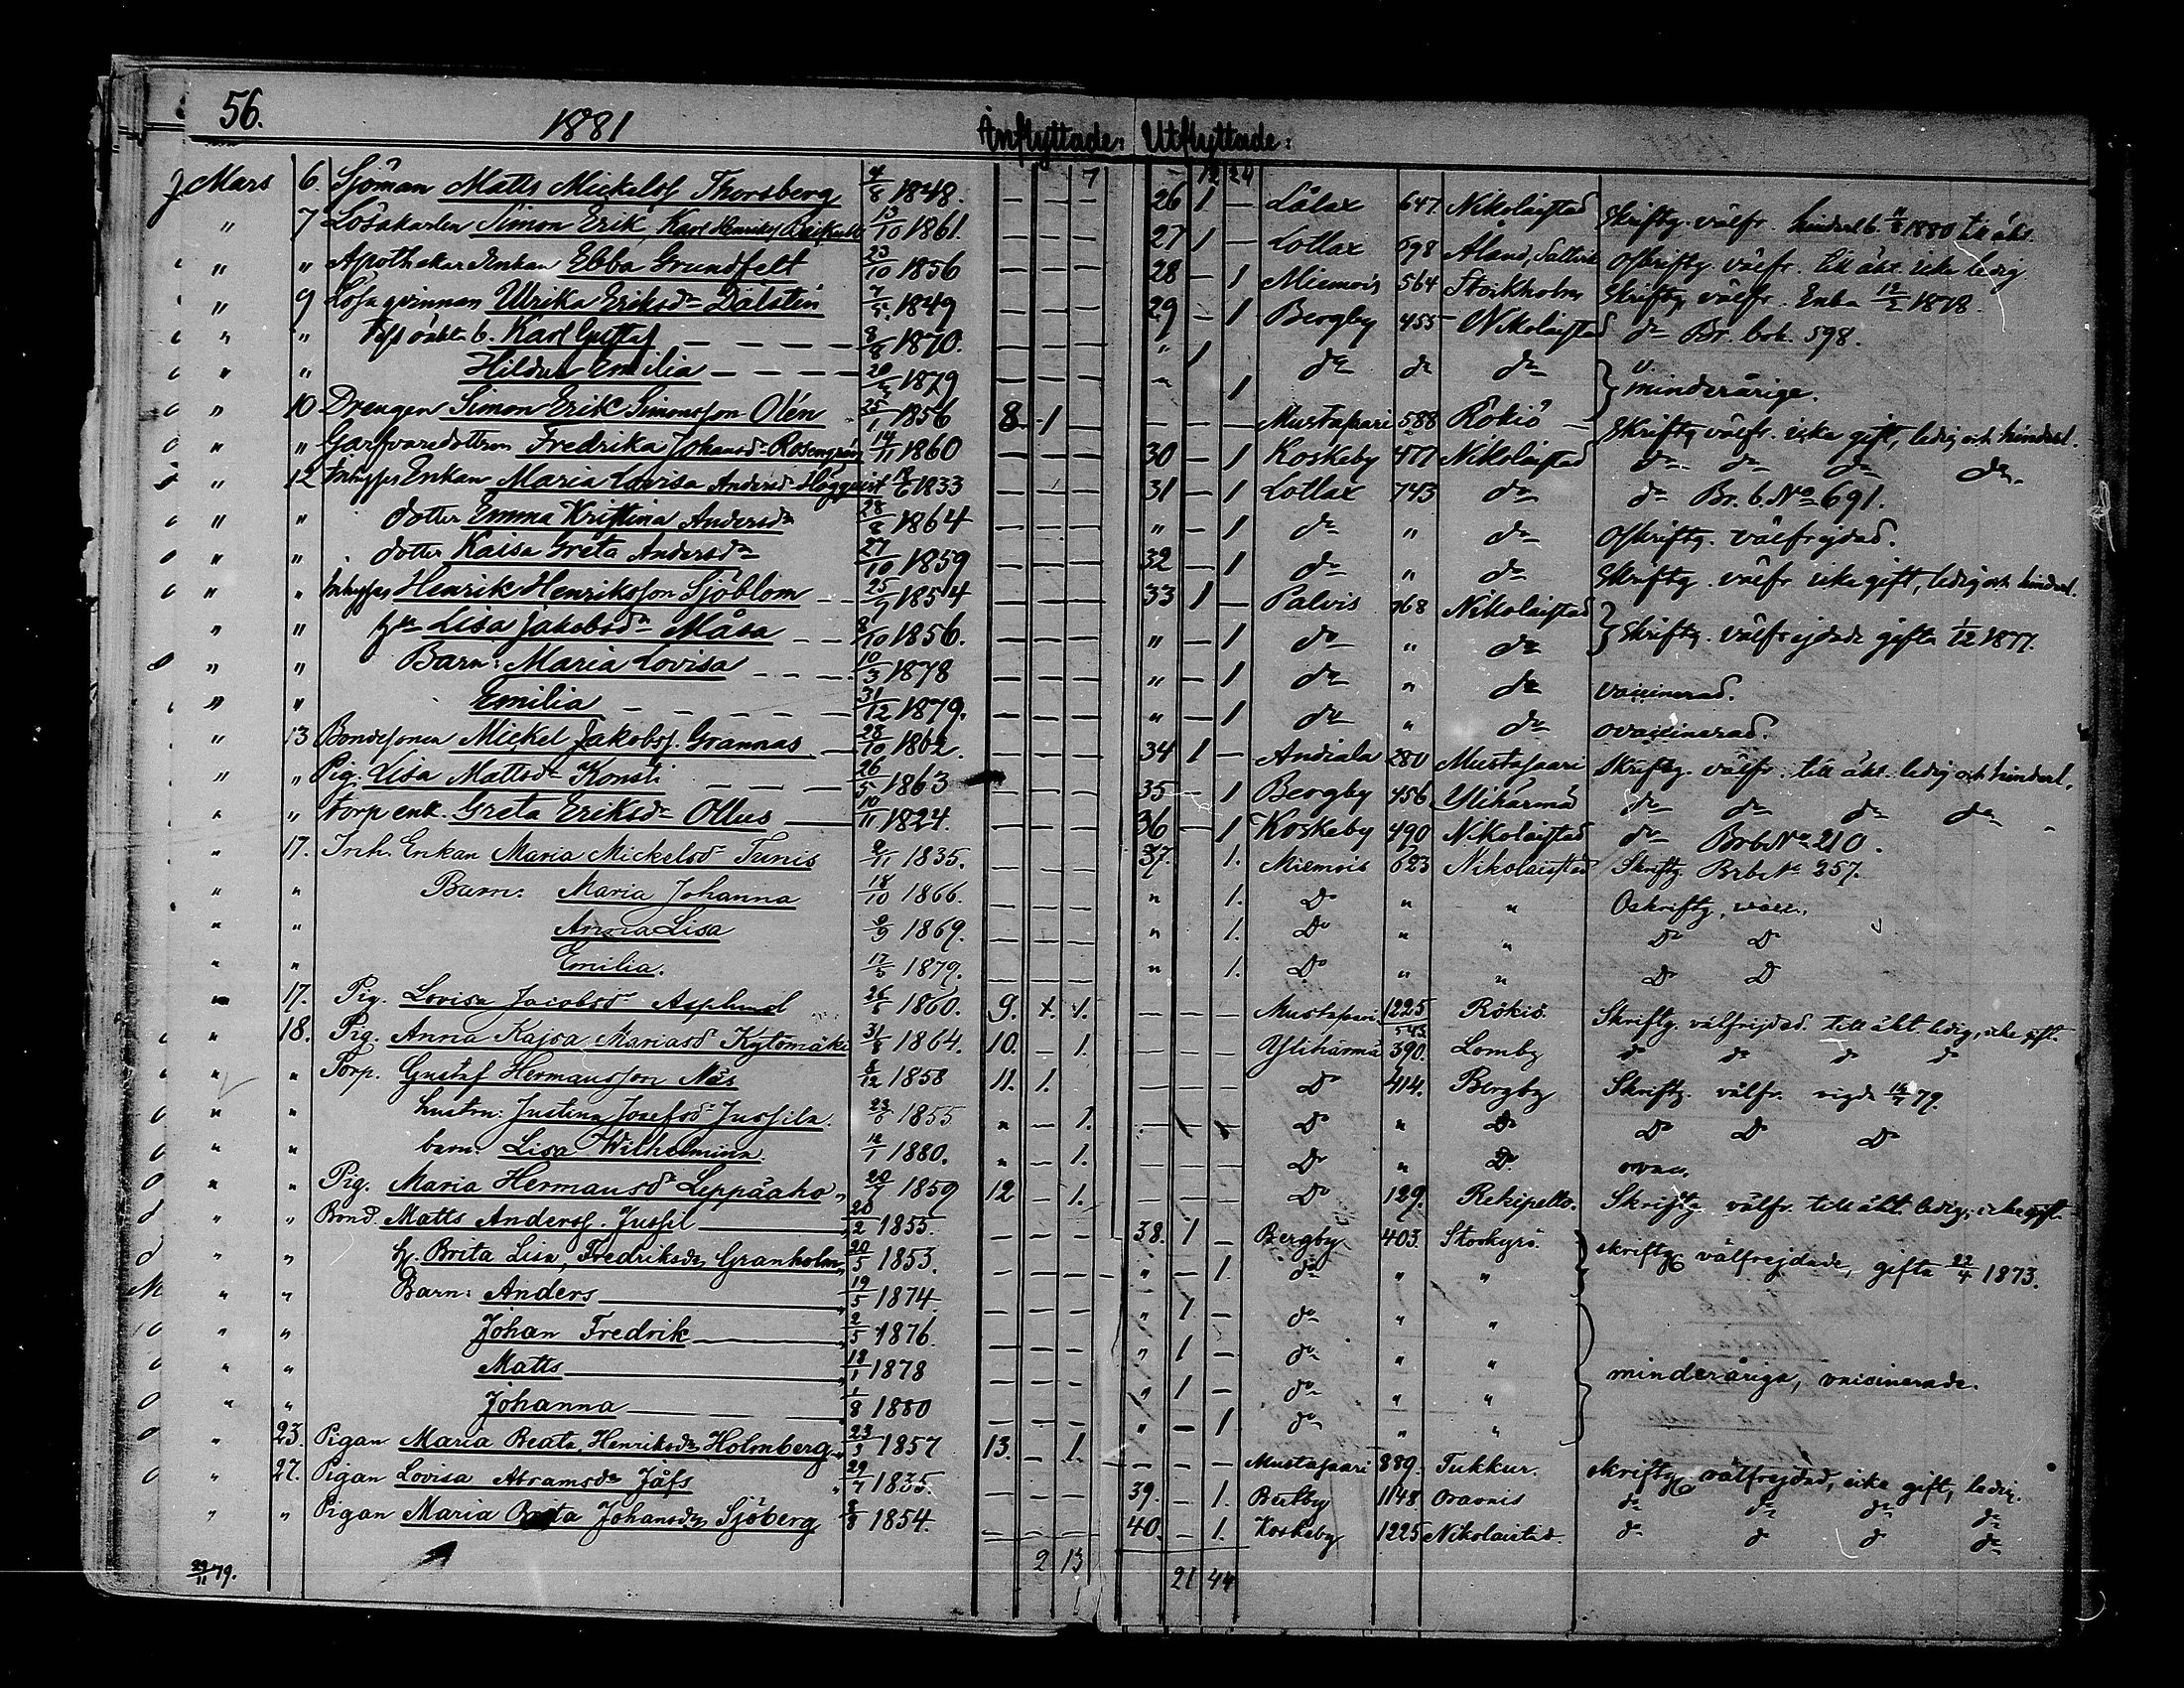 56. 1881 Inflyttade: Utflyttade:
7 12 24
Mars 6. Sjöman Matts Mickelss Thorsberg 4/8 1848. — — — 26 1 — Lålax 647 Nikolaistad Skriftg. välfr. hinderl. 1880 till äkt.
" 7 Lösakarlen Simon Erik Karl Henriks 13/10 1861. — — — 27 1 — Lotlax 698 Åland, Saltvik Oskriftg. välfr. till äkt. icke ledig
" " Apothekare Enkan Ebba Grundfelt 23/10 1856 — — — 28 — 1 Miemois 564 Stockholm Skriftg. välfr. Enka 12/2 1878.
" 9 Lösa qvinnan Ulrika Eriksdr Dalsten 7/5 1849 — — — 29 — 1 Bergby 455 Nikolaistad dr Br. bok. 598.
" " oäkta b. Karl Gustaf — — — 8/8 1870. — — — " 1 dr dr dr } minderårige.
" " Hilda Emilia — — — 1879 — — — " 1
" 10 Drengen Simon Erik Simonsson Olén 25/1 1856 8 1 — — — — Mustasaari 588 Rökiö — Skriftg. välfr. icke gift, ledig och hinderl.
" " Garfvaredottren Fredrika Johansdr Rosengrén 14/11 1860 — — — 30 — 1 Koskeby 477 Nikolaistad dr dr dr dr
" 12 Inhyses Enkan Maria Lovisa Andersdr Högqvist 1833 — — — 31 — 1 Lotlax 743 dr dr Br. b. No 691.
" " dotter Emma Kristina Andersdr 28/8 1864 — — — " — 1 dr " dr Oskriftg. välfrejdad.
" " dotter Kaisa Greta Andersdr 27/10 1859 — — — 32 — 1 dr " dr Skriftg. välfr icke gift, ledig och hinderl.
" " Inhyses Henrik Henriksson Sjöblom — — 1854 — — — 33 1 — Palvis 768 Nikolaistad } Skriftg. välfrejdade gifta 1/12 1877.
" " hu Lisa Jakobsdr Måsa — — 8/10 1856. — — — " — 1 dr " dr
" " Barn: Maria Lovisa — — — 10/3 1878 — — — " — 1 dr " dr vaccinerad.
" " Emilia — — — — — 31/12 1879. — — — " — 1 dr " dr ovaccinerad.
" 13 Bondesonen Mickel Jakobss. Grannas — 28/10 1862. — — — 34 1 — Andiala 280 Mustasaari Skriftg. välfr. till äkt. ledig och hinderl.
" " Pig. Lisa Mattsdr Konsti — — — 26/5 1863 — — — 35 — 1 Bergby 456 Ylihärmä dr dr dr dr
" " Torp enk. Greta Eriksdr Ollus — 10/11 1824. — — — 36 — 1 Koskeby 490 Nikolaistad dr Brb No 210.
" 17. Inh. Enkan Maria Mickelsdr Tunis 9/11 1835. — — — 37. 1. Miemois 623 Nikolaistad Skriftg Brb No 257.
" " Barn: Maria Johanna 18/10 1866. — — — " 1. Do " " Oskriftg, vacc.
" " Anna Lisa 9/9 1869. — — — " 1. Do " " Do Do
" " Emilia. 17/5 1879. — — — " 1. Do " " Do Do
" 17. Pig. Lovisa Jacobsdr Asplund 26/5 1860. 9. 1. — — — Mustasaari 1225/543 Rökiö Skriftg. välfrejdad. till äkt. ledig, icke gift.
" 18. Pig. Anna Kajsa Mariasd Kytömäki 31/8 1864. 10. — 1. — — — Ylihärmä 390. Lomby do do do do
" " Torp. Gustaf Hermansson Näs 8/12 1858 11. 1. — — — Do 414. Bergby Skriftg. välfr. vigda 79.
" " hustru: Justina Josefsdr Jussila. 1855 " — 1. — — — Do " Do Do Do Do
" " barn. Lisa Wilhelmina 1880. " — 1. — — — Do " Do ovac.
" " Pig. Maria Hermansdr Leppäaho 1859 12 — 1. — — — Do 129. Rekipelto. Skriftg välfr. till äkt. ledig, icke gift.
" " Bond. Matts Anderss. Jussil — 20/2 1855. — — — 38. 1 — Bergby 403. Storkyro. } skriftg välfrejdade, gifta 22/4 1873.
" " h. Brita Lisa, Fredriksdr Granholm 20/5 1853. — — — " — 1. dr " "
" " Barn: Anders — 19/5 1874. — — — " 1 — dr " "
" " Johan Fredrik — 2/5 1876. — — — " 1 — dr " "
" " Matts — 18/1 1878 — — — " 1 — dr " " } minderåriga, vaccinerade.
" " Johanna — 1/8 1880 — — — " — 1 dr " "
" 23. Pigan Maria Beata, Henriksdr Holmberg 23/3 1857 13. — 1. — — — Mustasaari 889. Tukkur. skriftg välfrejdad, icke gift, ledig.
" 27. Pigan Lovisa Abramsdr Jåfs 29/7 1835. — — — 39. — 1. Bertby 1148 Oravais dr dr dr dr
" " Pigan Maria Brita Johansdr Sjöberg 8/8 1854. — — — 40. — 1. Koskeby 1225 Nikolaistad. d d d dr
29/11 79. 2 13 21 44